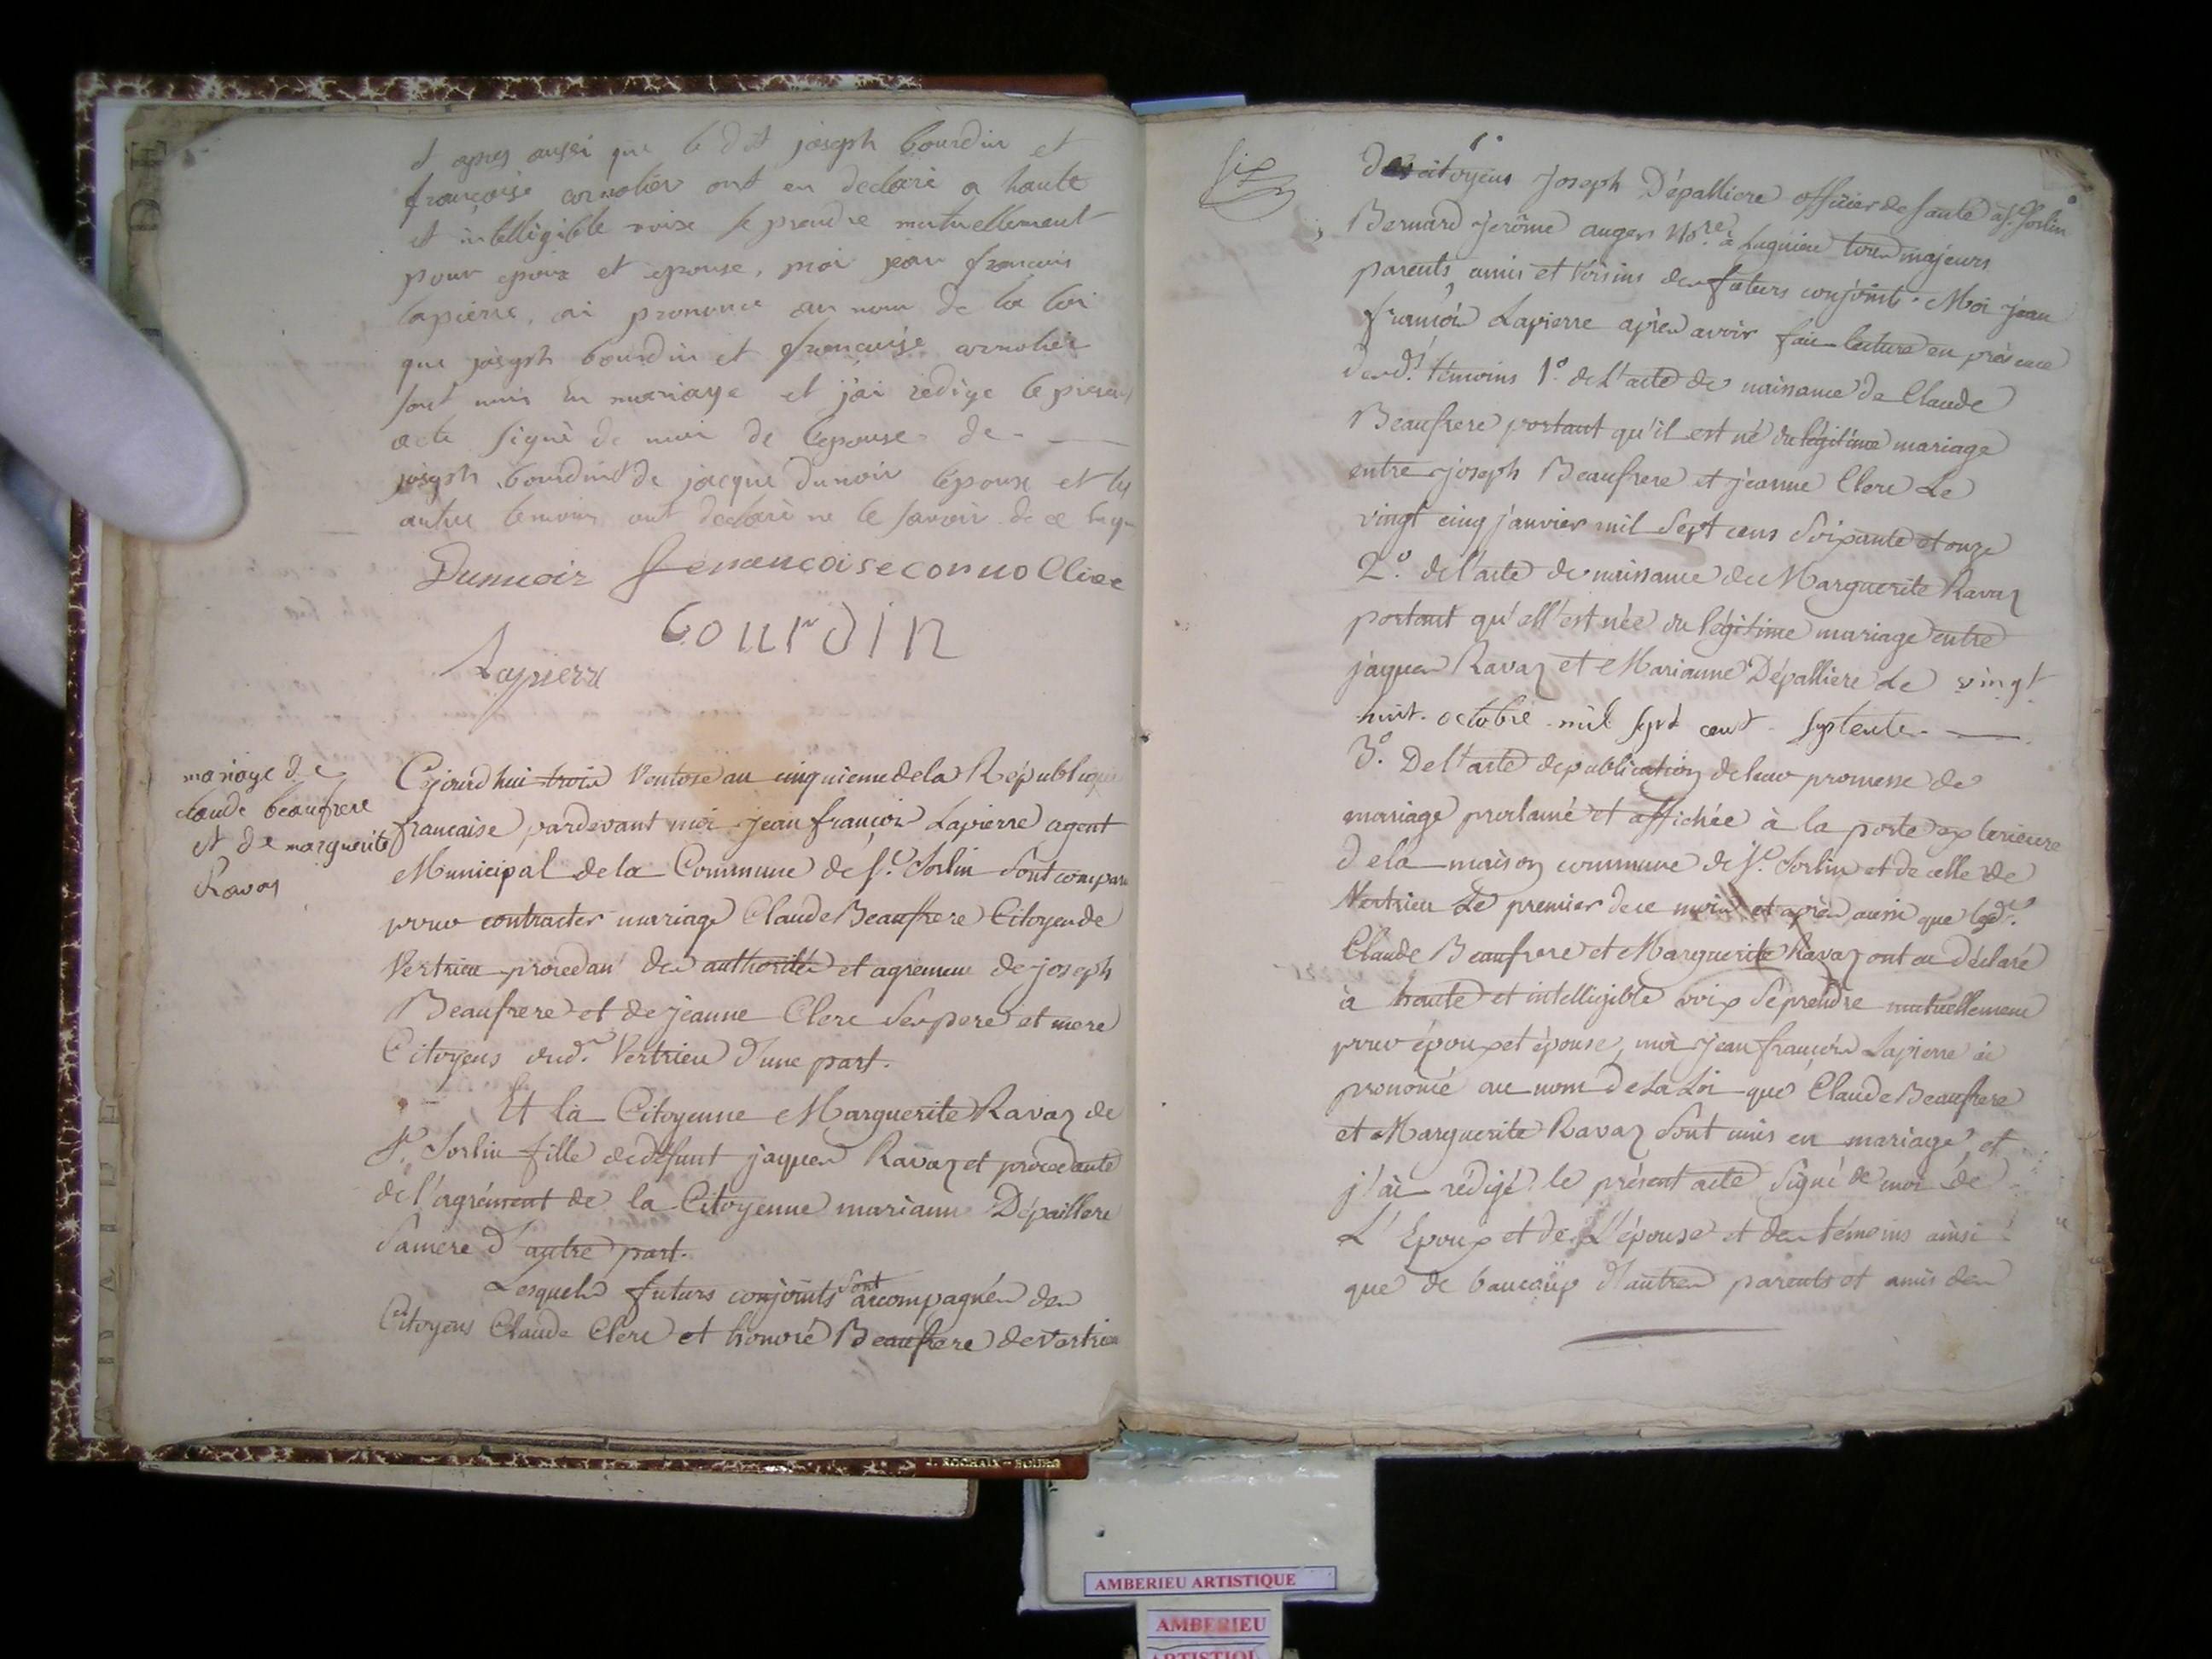 et apres aussi que le dit joseph bourdin et
françoise cornolier ont eu declaré a haute
et intelligible voix se prendre mutuellement
pour epoux et epouse, moi jean francois
lapierre, ai prononcé au nom de la loi
que joseph bourdin et francoise cornolier
sont unis en mariage et j'ai redige le present
acte signé de moi de lepouse de
joseph bourdin et de jacque dunoir lepoux et les
autres temoins ont declaré ne le savoir de ce
Dunuoir francoise cornollier
bourdin
Lapierre
mariage de
claude beaufrere
et de marguerite
Ravaz
Cejourdhui trois Ventose an cinquieme de la République
francaise pardevant moi jean françois Lapierre agent
Municipal de la Commune de St. Sorlin sont comparu
pour contracter mariage Claude Beaufrere Citoyen de
Vertrieu procedant des authorités et agrement de joseph
Beaufrere et de jeanne Clerc ses pere et mere
Citoyens dud. Vertrieu d'une part.
Et la Citoyenne Marguerite Ravaz de
St. Sorlin fille de défunt jaques Ravaz et procedante
de l'agrément de la Citoyenne mariane Dépaillere
sa mère d'autre part.
Lesquels futurs conjoints sont accompagnés des
Citoyens Claude Clerc et honoré Beaufrere de Vertrieu
six
Des citoyens Joseph Dépalliere officier de santé à St. Sorlin
Bernard Jerôme auger Nore. à Lagnieu tous majeurs
parents, amis et voisins des futurs conjoints. Moi jean
françois Lapierre après avoir fait lecture en présence
desd. témoins 1º. de l'acte de naissance de Claude
Beaufrere portant qu'il est né du légitime mariage
entre joseph Beaufrere et jeanne Clerc Le
vingt cinq janvier mil sept cens soixante et onze
2º. de l'acte de naissance de Marguerite Ravaz
portant qu'ell'est née du légitime mariage entre
jaques Ravaz et Marianne Dépalliere Le vingt
huit octobre mil sept cent septente
3º. De l'acte de publication de leur promesse de
mariage proclamé et affichée à la porte exterieure
de la maison commune de St. Sorlin et de celle de
Vertrieu Le premier de ce mois et après aussi que led.
Claude Beaufrere et Marguerite Ravaz ont eu déclaré
à haute et intelligible voix se prendre mutuellement
pour époux et épouse, moi jean françois Lapierre ai
prononcé au nom de la Loi que Claude Beaufrere
et Marguerite Ravaz sont unis en mariage et
j'ai rédigé le présent acte signé de moi de
L'Epoux et de L'épouse et des témoins ainsi
que de baucoup d'autres parents et amis des
J. ROCHAIX - BOURG
AMBERIEU ARTISTIQUE
AMBERIEU
ARTISTIQUE